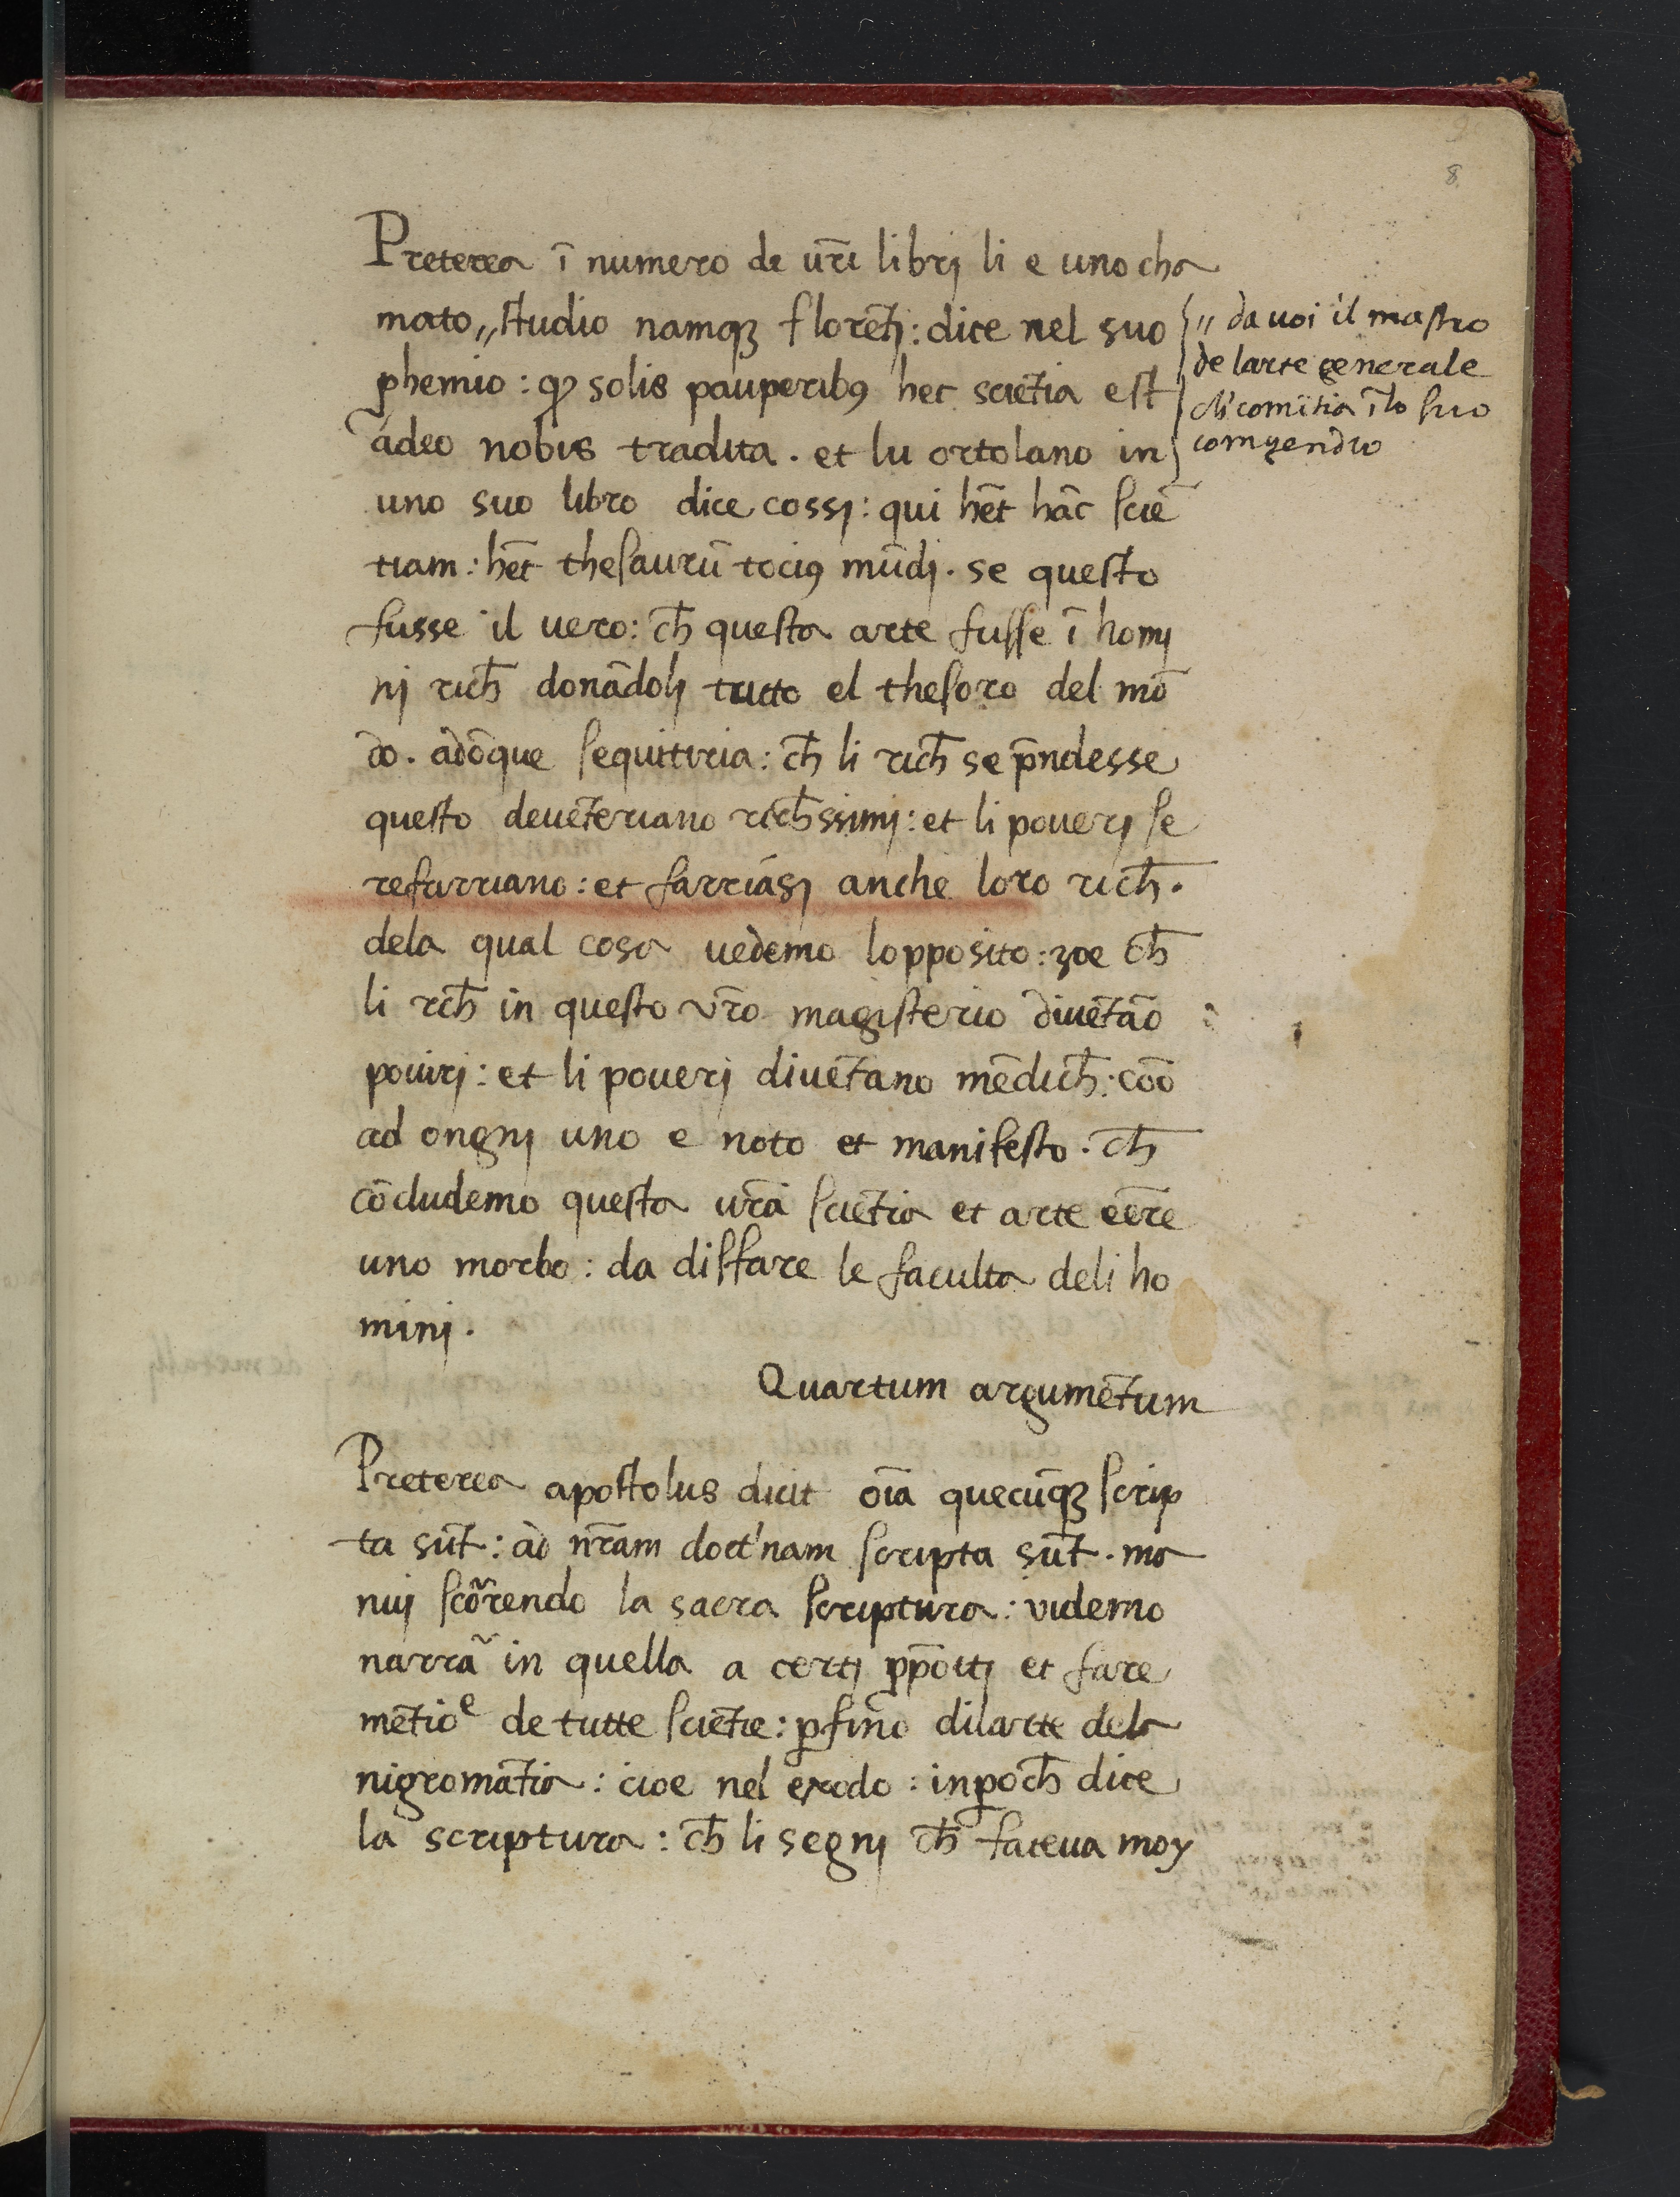 8
Preterea ī numero de ūr̄i librj li e uno cha
mato,, studio namqꝫ florēt̄j: dice nel suo
ꝓhemio: ꝙ solis pauperibꝰ hec sciētia est
adeo nobis tradita. et lu ortolano in
uno suo libro dice cossj: qui hēt hāc sciē
tiam: hēt thesaurū tociꝰ mūdj. se questo
fusse il uero: ch̄ questa arte fusse ī homj
nj rich̄ donādolj tutto el thesoro del mō
do. adōque sequitiria: ch̄ li rich̄ se p̄ndesse
questo deuēteriano rich̄ssimj: et li pouerj se
refarriano: et farriāsj anche loro rich̄.
dela qual cosa uedemo lopposito: zoe ch̄
li rich̄ in questo vr̄o magisterio diuētāo
pouirj: et li pouerj diuētano mēdich̄: cōo
ad ongnj uno e noto et manifesto. ch̄
cōcludemo questa ur̄a sciētia et arte eēre
uno morbo: da disfare le faculta deli ho
minj.
Quartum argumētum
Preterea apostolus dicit oīa quecūqꝫ scrip
ta sūt: ad nr̄am doct'nam scripta sūt. mo
nuj scōrendo la sacra scriptura: videmo
narrā in quella a certj ꝓpōitj et fare
mētioe de tutte sciētie: ꝑfino dilarte dela
nigromātia: cioe nel exodo: inꝑoch̄ dice
la scriptura: ch̄ li segnj ch̄ faceua moy
,, da uoi il mastro
de larte generale
ch' comītia īlo suo
compendio